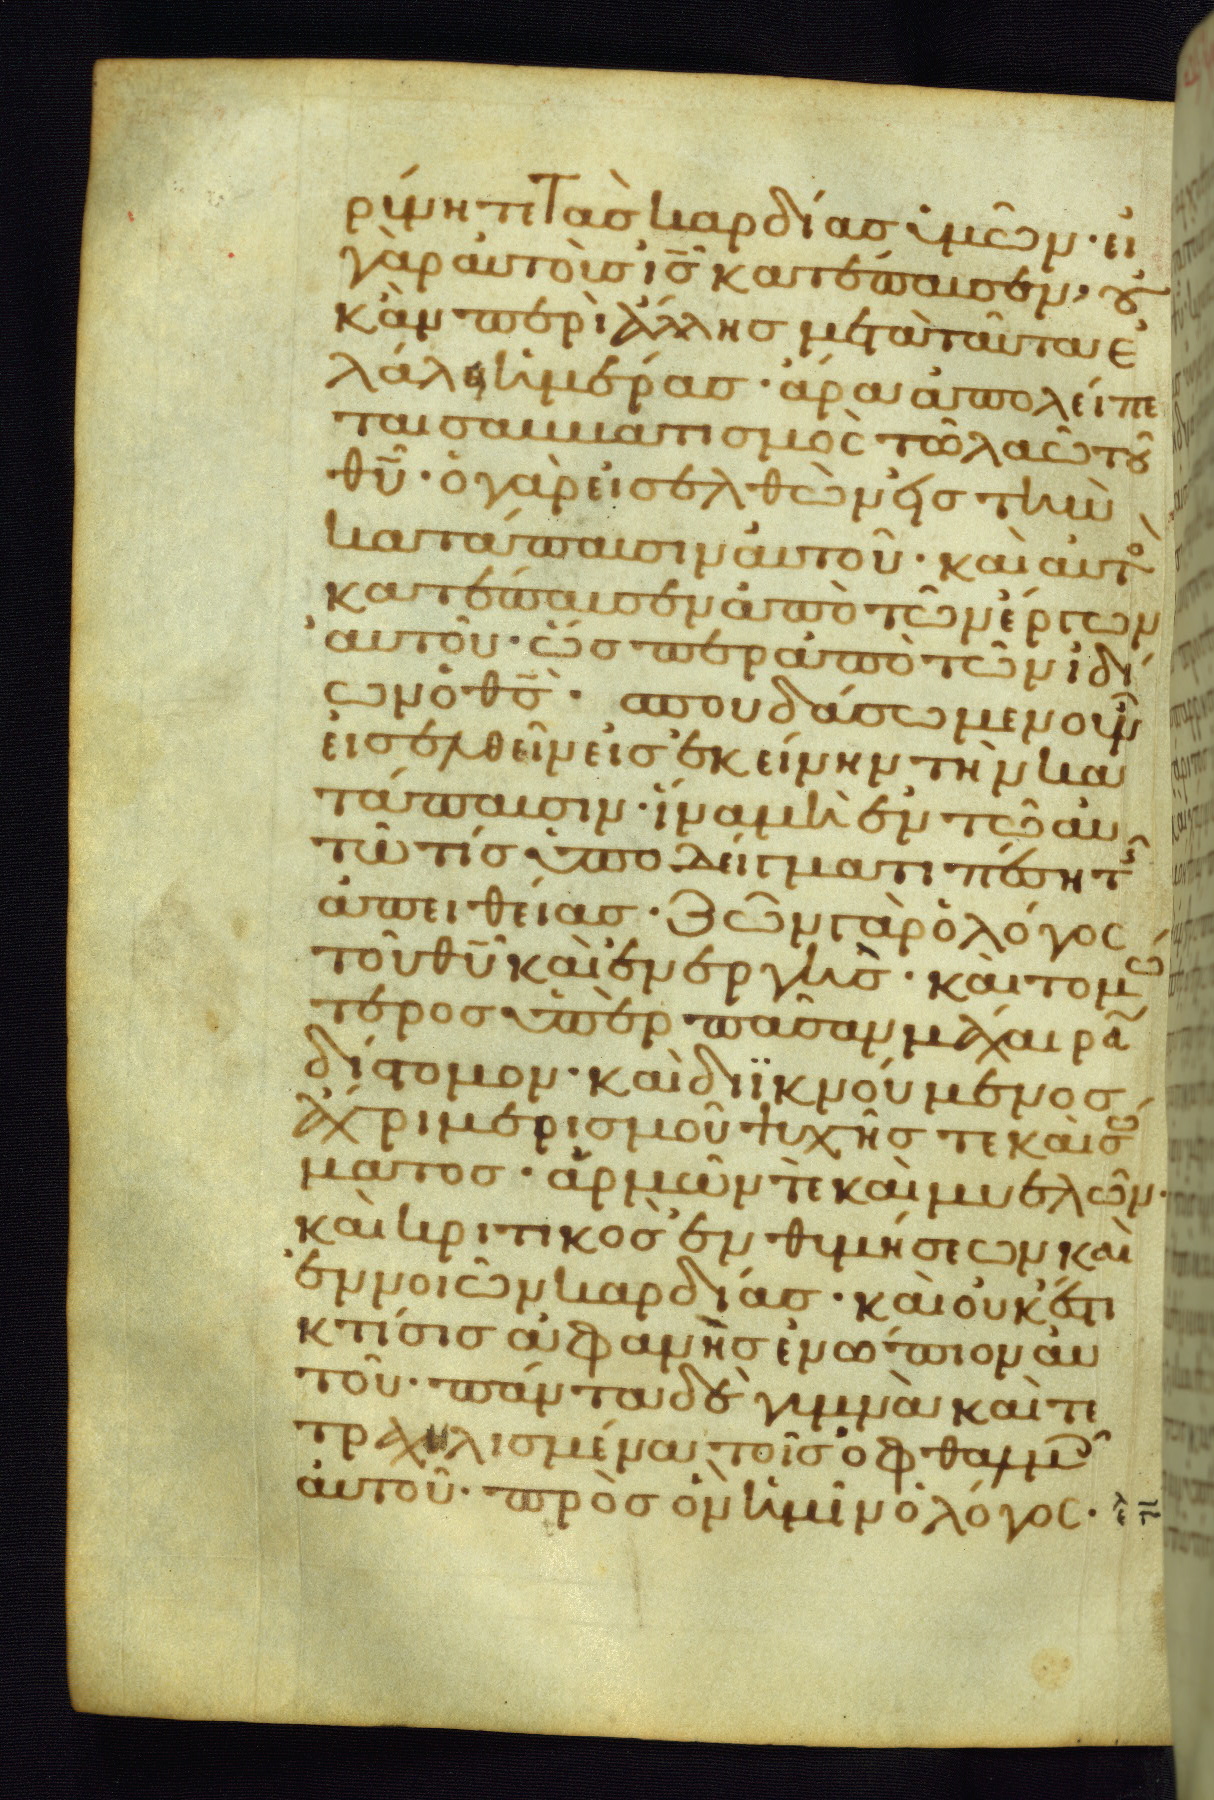 ρύνητε τὰς καρδίας ὑμῶν· εἰ
γὰρ αὐτοὺς ἰς̄ κατέπαυσεν, οὐ
κἂν περὶ ἄλλης μετὰ ταῦτα ἐ
λάλει ἡμέρας· ἄρα ἀπολείπε
ται σαββατισμὸς τῶ λαῶ τοῦ
θῡ· ὁ γὰρ εἰσελθὼν εἰς τὴν
κατάπαυσιν αὐτοῦ· καὶ αὐτὸ
κατέπαυσεν ἀπὸ τῶν ἔργων
αὐτοῦ· ὥσπερ ἀπὸ τῶν ἰδί
ων ὁ θς̄· σπουδάσωμεν οὖν
εἰσελθεῖν εἰς ἐκείνην τὴν κα
τάπαυσιν· ἵνα μὴ ἐν τῶ αὐ
τῶ τίς ὑπολείγματι πέση τῆ
ἀπειθείας· Ζῶν γὰρ ὁ λόγος
τοῦ θῡ καὶ ἐνεργὴς· καὶ τομώ
τερος ὑπὲρ πᾶσαν μάχαιρα
δίστομον· καὶ διϊκνούμενος
ἄχρι μερισμοῦ ψυχῆς τε καὶ σώ
ματος· ἁρμῶν τὲ καὶ μυελῶν·
καὶ κριτικὸς ἐνθυμήσεων καὶ
ἐννοιῶν καρδίας· καὶ οὐκ ἔστι
κτίσις ἀφανὴς ἐνώπιον αὐ
τοῦ· πάντα δὲ γυμνὰ καὶ τε
τραχηλισμένα τοῖς ὀφθαλμοῖ
αὐτοῦ· πρὸς ὃν ἡμῖν ὁ λόγος·